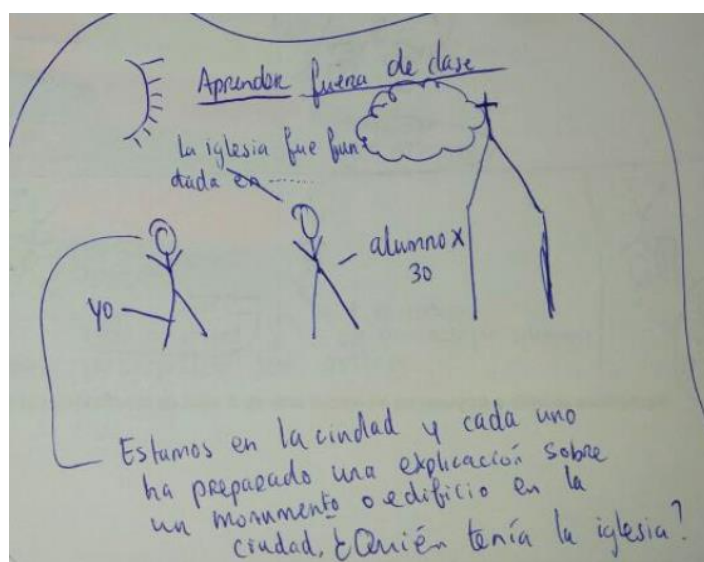 Aprender fuera de clase
La iglesia fue fun
dada en ........
alumno x
30
yo
Estamos en la ciudad y cada uno
ha preparado una explicación sobre
un monumento o edificio en la
ciudad, ¿Quién tenía la iglesia?